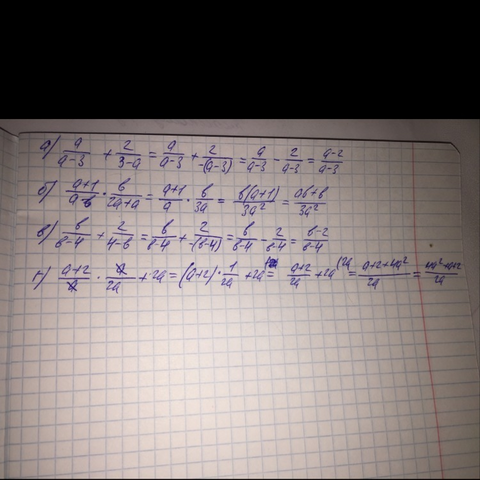 а) a/(a-3) + 2/(3-a) = a/(a-3) + 2/(-(a-3)) = a/(a-3) - 2/(a-3) = (a-2)/(a-3)
б) (a+1)/(a) · b/(2a+a) = (a+1)/a · b/(3a) = b(a+1)/(3a²) = (ab+b)/(3a²)
в) b/(b-4) + 2/(4-b) = b/(b-4) + 2/(-(b-4)) = b/(b-4) - 2/(b-4) = (b-2)/(b-4)
г) (a+2)/a · a/(2a) + 2a = (a+2) · 1/(2a) + 2a = (a+2)/(2a) + 2a (2a = (a+2+4a²)/(2a) = (4a²+a+2)/(2a)